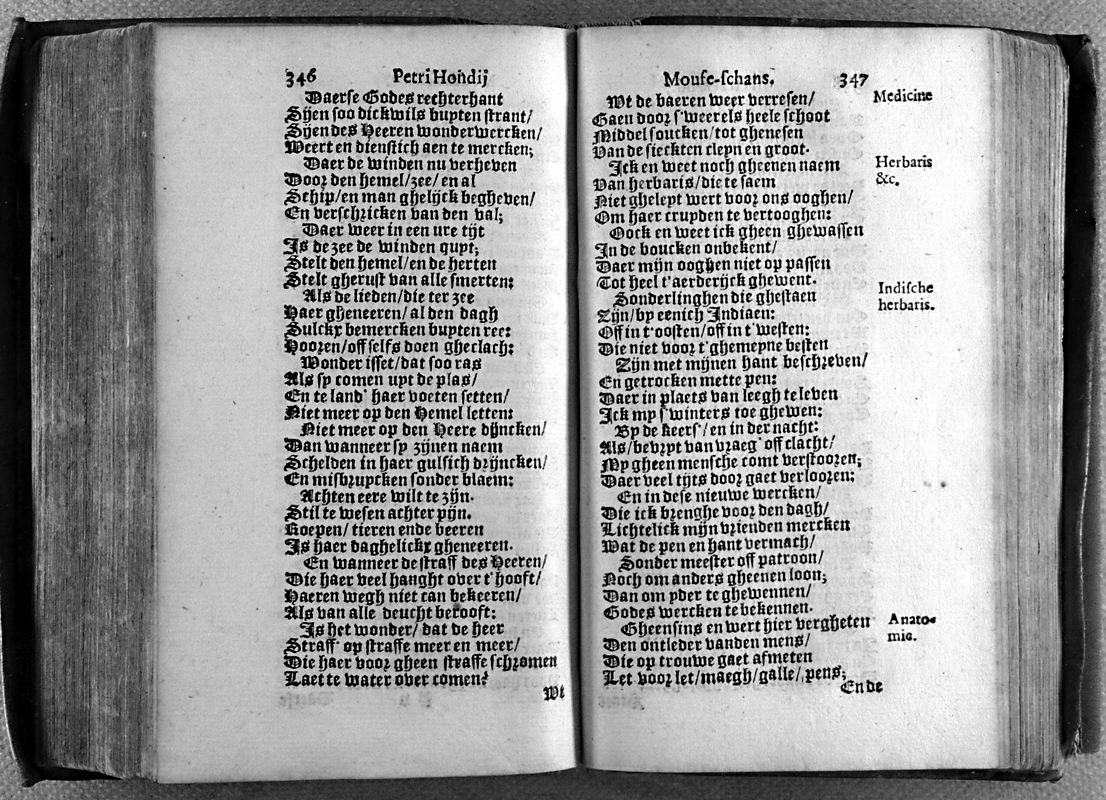 346 Petri Hondij
Daerse Godes rechterhant
Syen soo dickwils buyten strant/
Syen des Heeren wonderwercken/
Weert en dienstich aen te mercken;
Daer de winden nu verheven
Door den hemel/zee/en al
Schip/en man ghelijck begheven/
En verschricken van den val;
Daer weer in een ure tijt
Is de zee de winden quyt;
Stelt den hemel/en de herten
Stelt gherust van alle smerten:
Als de lieden/die ter zee
Haer gheneeren/al den dagh
Sulckx bemercken buyten ree:
Hooren/off selfs doen gheclach:
Wonder isset/dat soo ras
Als sy comen upt de plas/
En te land' haer voeten setten/
Niet meer op den Hemel letten:
Niet meer op den Heere dijncken/
Dan wanneer sy zijnen naem
Schelden in haer gulsich drijncken/
En misbruycken sonder blaem:
Achten eere wilt te zijn.
Stil te wesen achter pijn.
Roepen/tieren ende beeren
Is haer daghelickx gheneeren.
En wanneer de straff des Heeren/
Die haer veel hanght over t'hooft/
Haeren wegh niet can bekeeren/
Als van alle deucht berooft:
Is het wonder/dat de heer
Straff op straffe meer en meer/
Die haer voor gheen straffe schromen
Laet te water over comen?
Wt
Mouse-schans. 347
Wt de baeren weer verresen/
Gaen door s'weerels heele schoot
Middel soucken/tot ghenesen
Van de sieckten cleyn en groot.
Ick en weet noch gheenen naem
Van herbaris/die te saem
Niet ghelept wert voor ons ooghen/
Om haer cruyden te vertooghen:
Oock en weet ick gheen ghewassen
In de boucken onbekent/
Daer mijn ooghen niet op passen
Tot heel t'aerderijck ghewent.
Sonderlinghen die ghestaen
Zijn/by eenich Indiaen:
Off in t'oosten/off in t'westen:
Die niet voor t'ghemeyne besten
Zijn met mijnen hant beschreven/
En getrocken mette pen:
Daer in plaets van leegh te leven
Ick my s'winters toe ghewen:
By de keers'/en in der nacht:
Als/bevryt van vraeg' off clacht/
My gheen mensche comt verstooren;
Daer veel tijts door gaet verlooren:
En in dese nieuwe wercken/
Die ick brenghe voor den dagh/
Lichtelick mijn vrienden mercken
Wat de pen en hant vermach/
Sonder meester off patroon/
Noch om anders gheenen loon;
Dan om yder te ghewennen/
Godes wercken te bekennen.
Gheensins en wert hier vergheten
Den ontleder vanden mens/
Die op trouwe gaet afmeten
Let voor let/maegh/galle/pens;
Ende
Medicine
Herbaris
&c.
Indische
herbaris.
Anato-
mie.